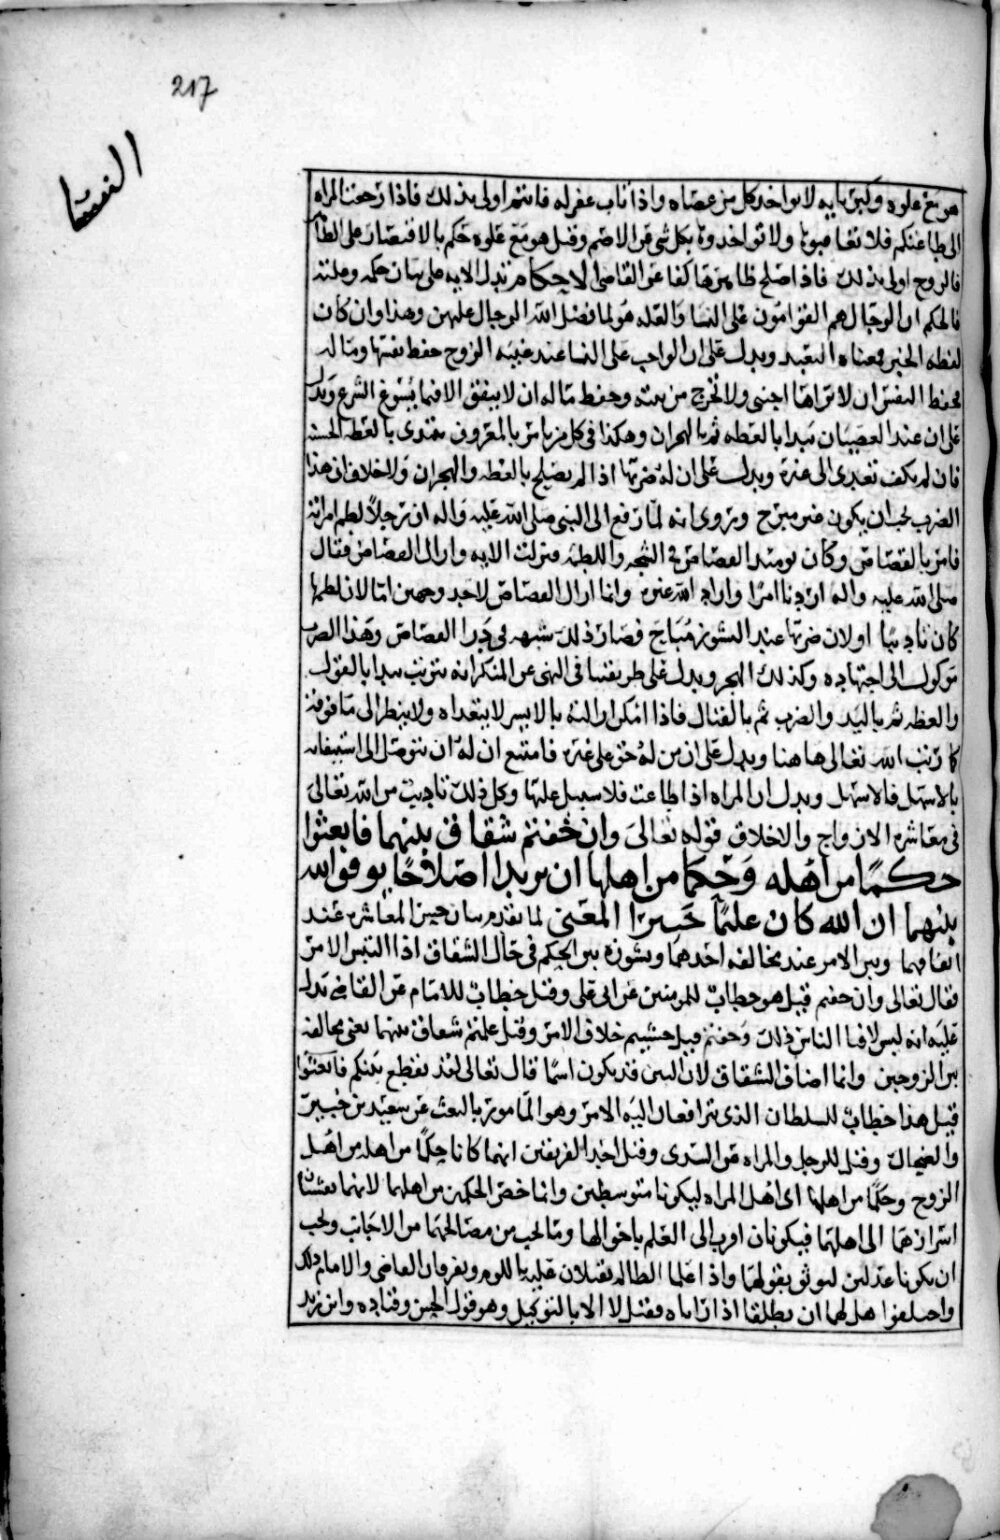 217
النسا
هو مع علوه وكبريايه لا يواخذ كل من عصاه واذا تاب غفر له فانتم اولى بذلك فاذا رجعت المراه
الى طاعتكم فلا تعاقبوها ولا تواخذوها بكل شي عن الاصم وقيل هو مع علوه حكم بالاقتصار على الظاهر
فالزوج اولى بذلك فاذا اصلح ظاهرها كفا عن القاضي الاحكام تدل الايه على بيان حكمه وعلته
فالحكم ان الرجال هم القوامون على النسا والعله هو لما فضل الله الرجال عليهن وهذا وان كان
لفظه الخبر فمعناه التعبد ويدل على ان الواجب على النسا عند غيبه الزوج حفظ نفسها وماله
فحفظ النفس ان لا يراها اجنبي ولا تخرج من بيته وحفظ ماله ان لا ينفق الا فيما يسوغ الشرع ويدل
على ان عند العصيان يبدا بالعظه ثم بالهجران وهكذا في كل من يامر بالمعروف يبتدي بالعظه الحسنه
فان لم يكف تعدى الى غيره ويدل على ان له ضربها اذا لم يصلح بالعظه والهجران ولا خلاف ان هذا
الضرب يجب ان يكون غير مبرح ويروى انه لما رفع الى النبي صلى الله عليه واله ان رجلا لطم امراته
فامر بالقصاص وكان يومئذ القصاص في الشجه واللطمه فنزلت الايه وازال القصاص فقال
صلى الله عليه واله اردنا امرا واراد الله غيره وانما ازال القصاص لاحد وجهين اما لان لطمها
كان تاديبا او لان ضربها عند النشوز مباح فصار ذلك شبهه في درا القصاص وهذا الضرب
موكول الى اجتهاده وكذلك الهجر ويدل على طريقتنا في النهي عن المنكر انه يترتب يبدا بالقول
والعظه ثم باليد والضرب ثم بالقتال فاذا امكن ازالته بالايسر لا يتعداه ولا ينظر الى ما فوقه
كما رتب الله تعالى هاهنا ويدل على ان من له حق على غيره فامتنع ان له ان يتوصل الى استيفائه
بالاسهل فالاسهل ويدل ان المراه اذا اطاعت فلا سبيل عليها وكل ذلك تاديب من الله تعالى
في معاشره الازواج والاخلاق قوله تعالى وان خفتم شقاق بينهما فابعثوا
حكما من اهله وحكما من اهلها ان يريدا اصلاحا يوفق الله
بينهما ان الله كان عليما خبيرا المعنى لما تقدم بيان حسن المعاشره عند
اتفاقهما وبين الامر عند مخالفه احدهما ونشوزه بين الحكم في حال الشقاق اذا التبس الامر
فقال تعالى وان خفتم قيل هو خطاب للمومنين عن ابي علي وقيل خطاب للامام عن القاضي تدل
عليه انه ليس لافنا الناس ذلك وخفتم قيل خشيتم خلاف الامر وقيل علمتم شقاق بينهما يعني مخالفه
بين الزوجين وانما اضاف الشقاق لان البين قد يكون اسما قال تعالى لقد تقطع بينكم فابعثوا
قيل هذا خطاب للسلطان الذي يترافعان اليه الامر وهو المامور بالبعث عن سعيد بن جبير
والضحاك وقيل للرجل والمراه عن السدي وقيل احد الفريقين ايهما كانا حكما من اهله من اهل
الزوج وحكما من اهلها اى اهل المراه ليكونا متوسطين وانما خص الحكمين من اهلهما لانهما يفشيان
اسرارهما الى اهلهما فيكونان اقرب الى العلم باحوالهما وما يجب من مصالحهما من الاجانب ويجب
ان يكونا عدلين ليوثق بقولهما واذا علما الظالم يقبلان عليه باللوم ويعرفان القاضي والامام ذلك
واختلفوا هل لهما ان يطلقا اذا راياه فقيل لا الا بالتوكيل وهو قول الحسن وقتاده وابن زيد